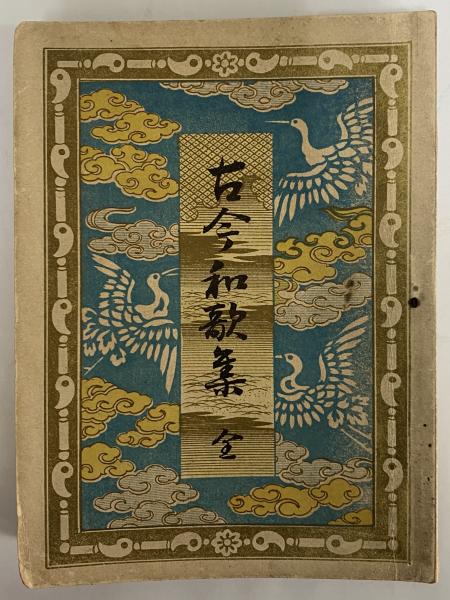 古今和歌集 全